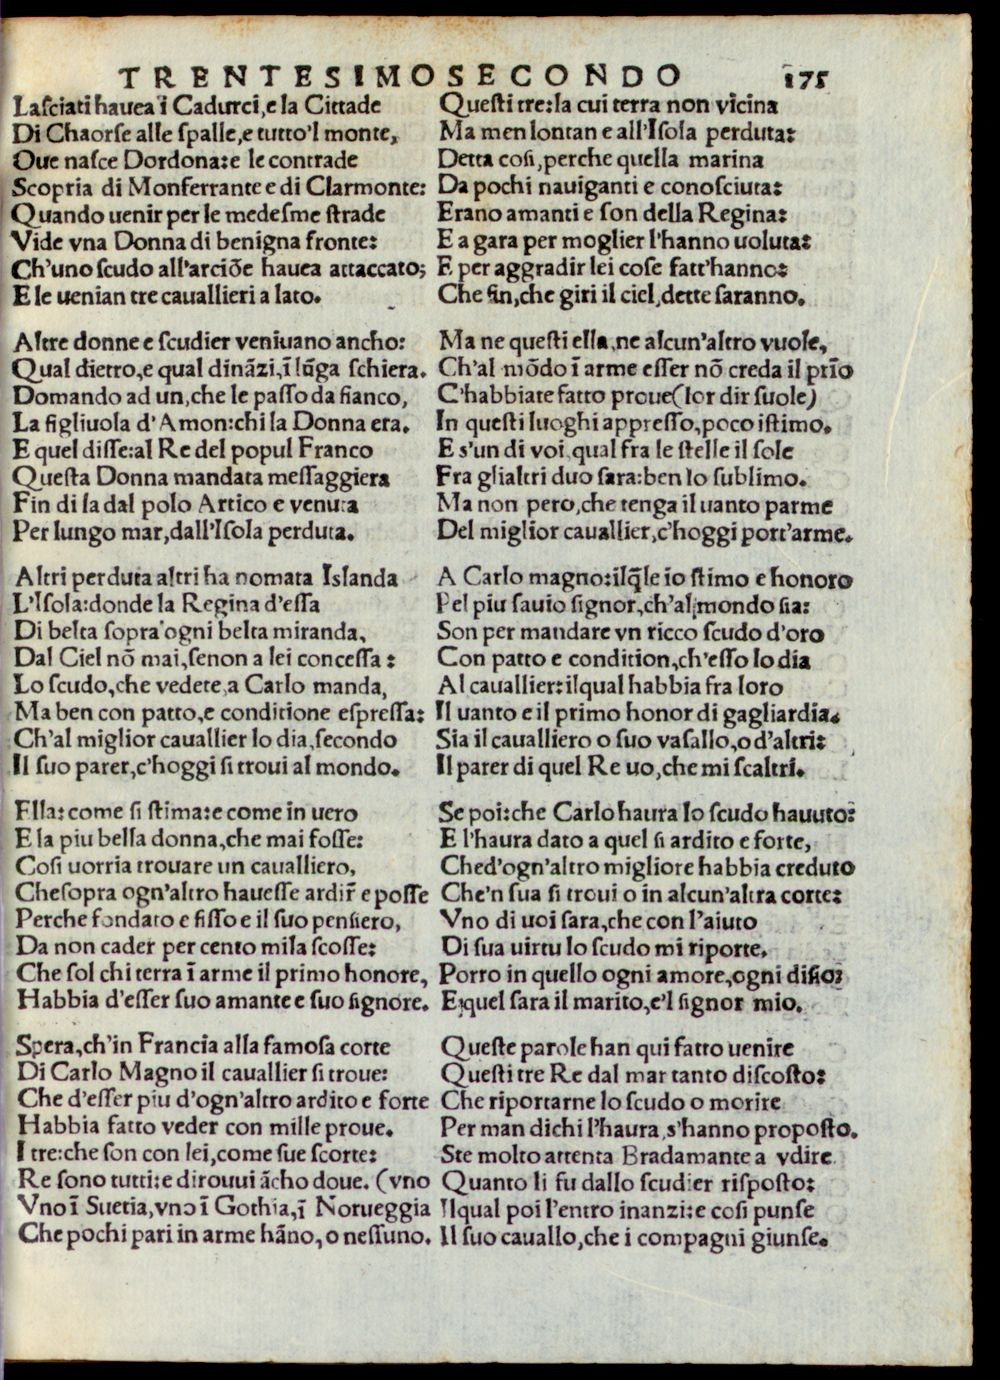 TRENTESIMOSECONDO 175
Lasciati hauea i Cadurci,e la Cittade
Di Chaorse alle spalle,e tutto'l monte,
Oue nasce Dordona:e le contrade
Scopria di Monferrante e di Clarmonte:
Quando uenir per le medesme strade
Vide vna Donna di benigna fronte:
Ch'uno scudo all'arciõe hauea attaccato;
E le uenian tre cauallieri a lato.
Altre donne e scudier veniuano ancho:
Qual dietro,e qual dinãzi,ĩ lũga schiera.
Domando ad un,che le passo da fianco,
La figliuola d'Amon:chi la Donna era.
E quel disse:al Re del popul Franco
Questa Donna mandata messaggiera
Fin di la dal polo Artico e venuta
Per lungo mar,dall'Isola perduta.
Altri perduta altri ha nomata Islanda
L'Isola:donde la Regina d'essa
Di belta sopra ogni belta miranda,
Dal Ciel nõ mai,senon a lei concessa:
Lo scudo,che vedete,a Carlo manda,
Ma ben con patto,e conditione espressa:
Ch'al miglior cauallier lo dia,secondo
Il suo parer,c'hoggi si troui al mondo.
Ella:come si stima:e come in uero
E la piu bella donna,che mai fosse:
Cosi uorria trouare un caualliero,
Che sopra ogn'altro hauesse ardir̃ e posse
Perche fondato e fisso e il suo pensiero,
Da non cader per cento mila scosse:
Che sol chi terra ĩ arme il primo honore,
Habbia d'esser suo amante e suo signore.
Spera,ch'in Francia alla famosa corte
Di Carlo Magno il cauallier si troue:
Che d'esser piu d'ogn'altro ardito e forte
Habbia fatto veder con mille proue.
I tre:che son con lei,come sue scorte:
Re sono tutti:e dirouui ãcho doue. (vno
Vno ĩ Suetia,vno ĩ Gothia,ĩ Norueggia
Che pochi pari in arme hãno,o nessuno.
Questi tre:la cui terra non vicina
Ma men lontan e all'Isola perduta:
Detta cosi,perche quella marina
Da pochi nauiganti e conosciuta:
Erano amanti e son della Regina:
E a gara per moglier l'hanno uoluta:
E per aggradir lei cose fatt'hanno:
Che fin,che giri il ciel,dette saranno.
Ma ne questi ella,ne alcun'altro vuole,
Ch'al mõdo ĩ arme esser nõ creda il prĩo
C'habbiate fatto proue(lor dir suole)
In questi luoghi appresso,poco istimo.
E s'un di voi qual fra le stelle il sole
Fra glialtri duo sara:ben lo sublimo.
Ma non pero,che tenga il uanto parme
Del miglior cauallier,c'hoggi port'arme.
A Carlo magno:ilq̃le io stimo e honoro
Pel piu sauio signor,ch'al mondo sia:
Son per mandare vn ricco scudo d'oro
Con patto e condition,ch'esso lo dia
Al cauallier:ilqual habbia fra loro
Il uanto e il primo honor di gagliardia.
Sia il caualliero o suo vasallo,o d'altri:
Il parer di quel Re uo,che mi scaltri.
Se poi:che Carlo haura lo scudo hauuto:
E l'haura dato a quel si ardito e forte,
Ched'ogn'altro migliore habbia creduto
Che'n sua si troui o in alcun'altra corte:
Vno di uoi sara,che con l'aiuto
Di sua uirtu lo scudo mi riporte,
Porro in quello ogni amore,ogni disio:
E quel sara il marito,e'l signor mio.
Queste parole han qui fatto uenire
Questi tre Re dal mar tanto discosto:
Che riportarne lo scudo o morire
Per man dichi l'haura,s'hanno proposto.
Ste molto attenta Bradamante a vdire
Quanto li fu dallo scudier risposto:
Ilqual poi l'entro inanzi:e cosi punse
Il suo cauallo,che i compagni giunse.